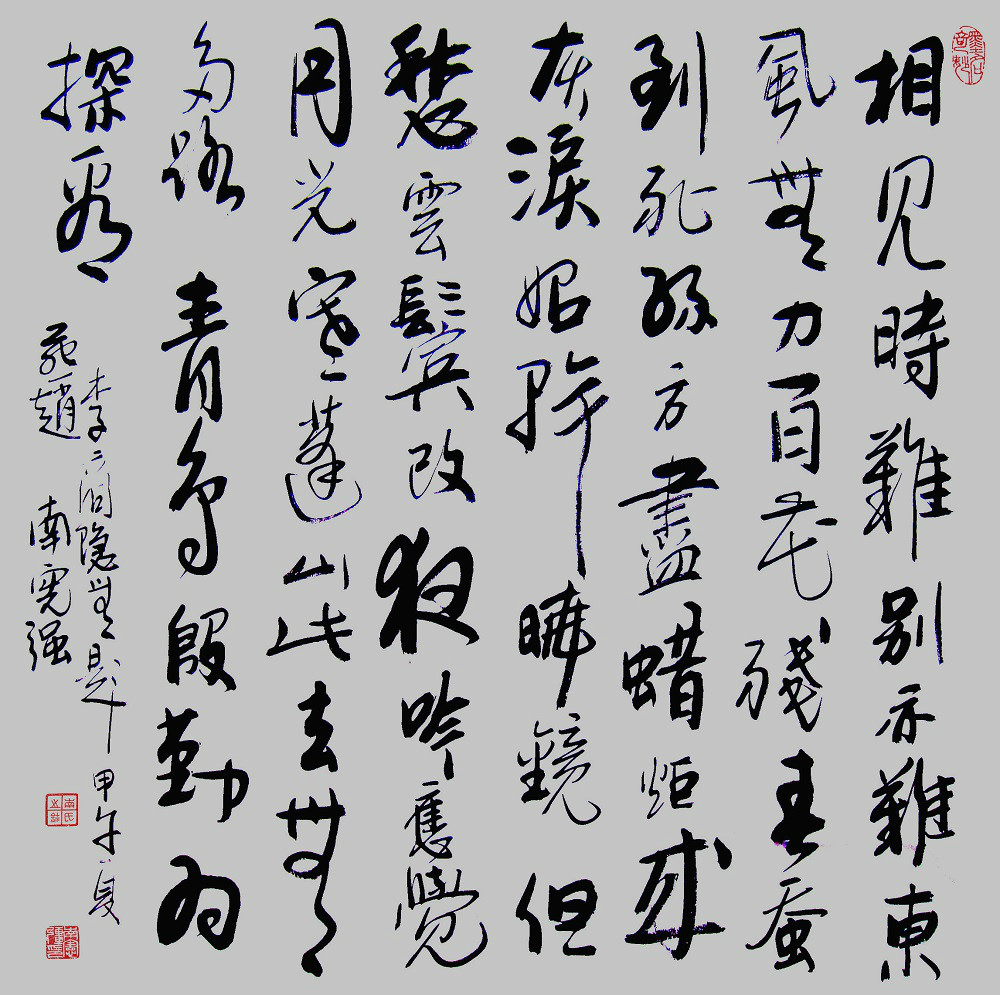 相見時難別亦難東
風無力百花殘春蚕
到死絲方盡蜡炬成
灰淚始幹曉鏡但
愁雲鬢改夜吟應覺
月光寒蓬山此去無
多路青鳥殷勤为
探看
李商隐無題 甲午夏
燕趙 南宪强